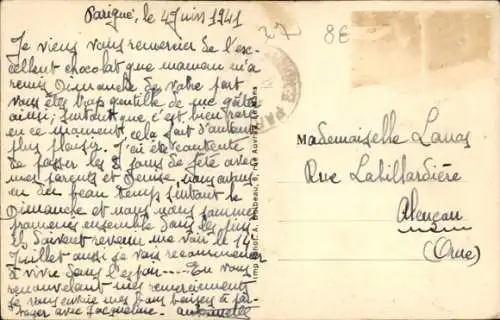 Parigné, le 4 Juin 1941
Je viens vous remercier de l'ex-
cellent chocolat que maman m'a
remis Dimanche de votre part
vous êtes trop gentille de me gâter
ainsi; surtout que c'est bien rare
en ce moment, cela fait d'autant
plus plaisir. J'ai été contente
de passer les 2 jours de fête avec
mes parents et Denise, nous avons
eu du beau temps surtout le
Dimanche et nous nous sommes
promenés ensemble dans les
Ils doivent revenir me voir le 14
Juillet aussi je vais recommencer
à vivre dans l'espoir.... En vous
renouvelant mes remerciements
je vous envoie mes bons baisers à par-
tager avec Jacqueline. Antoinette
27
8€
Mademoiselle Lanos
Rue Labillardière
Alençon
(Orne)